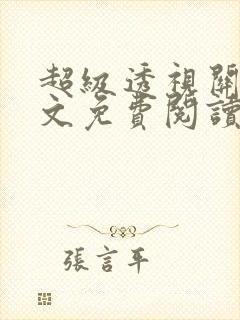 超級透視關
文免費閱讀
張言平